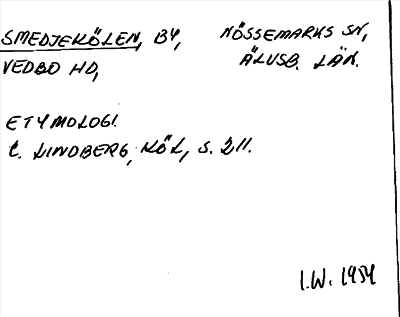 SMEDJEKÖLEN, BY, NÖSSEMARKS SN,
VEDBO HD, ÄLVSB. LÄN.
ETYMOLOGI.
C. LINDBERG, KÖL, S. 211.
I.W. 1954